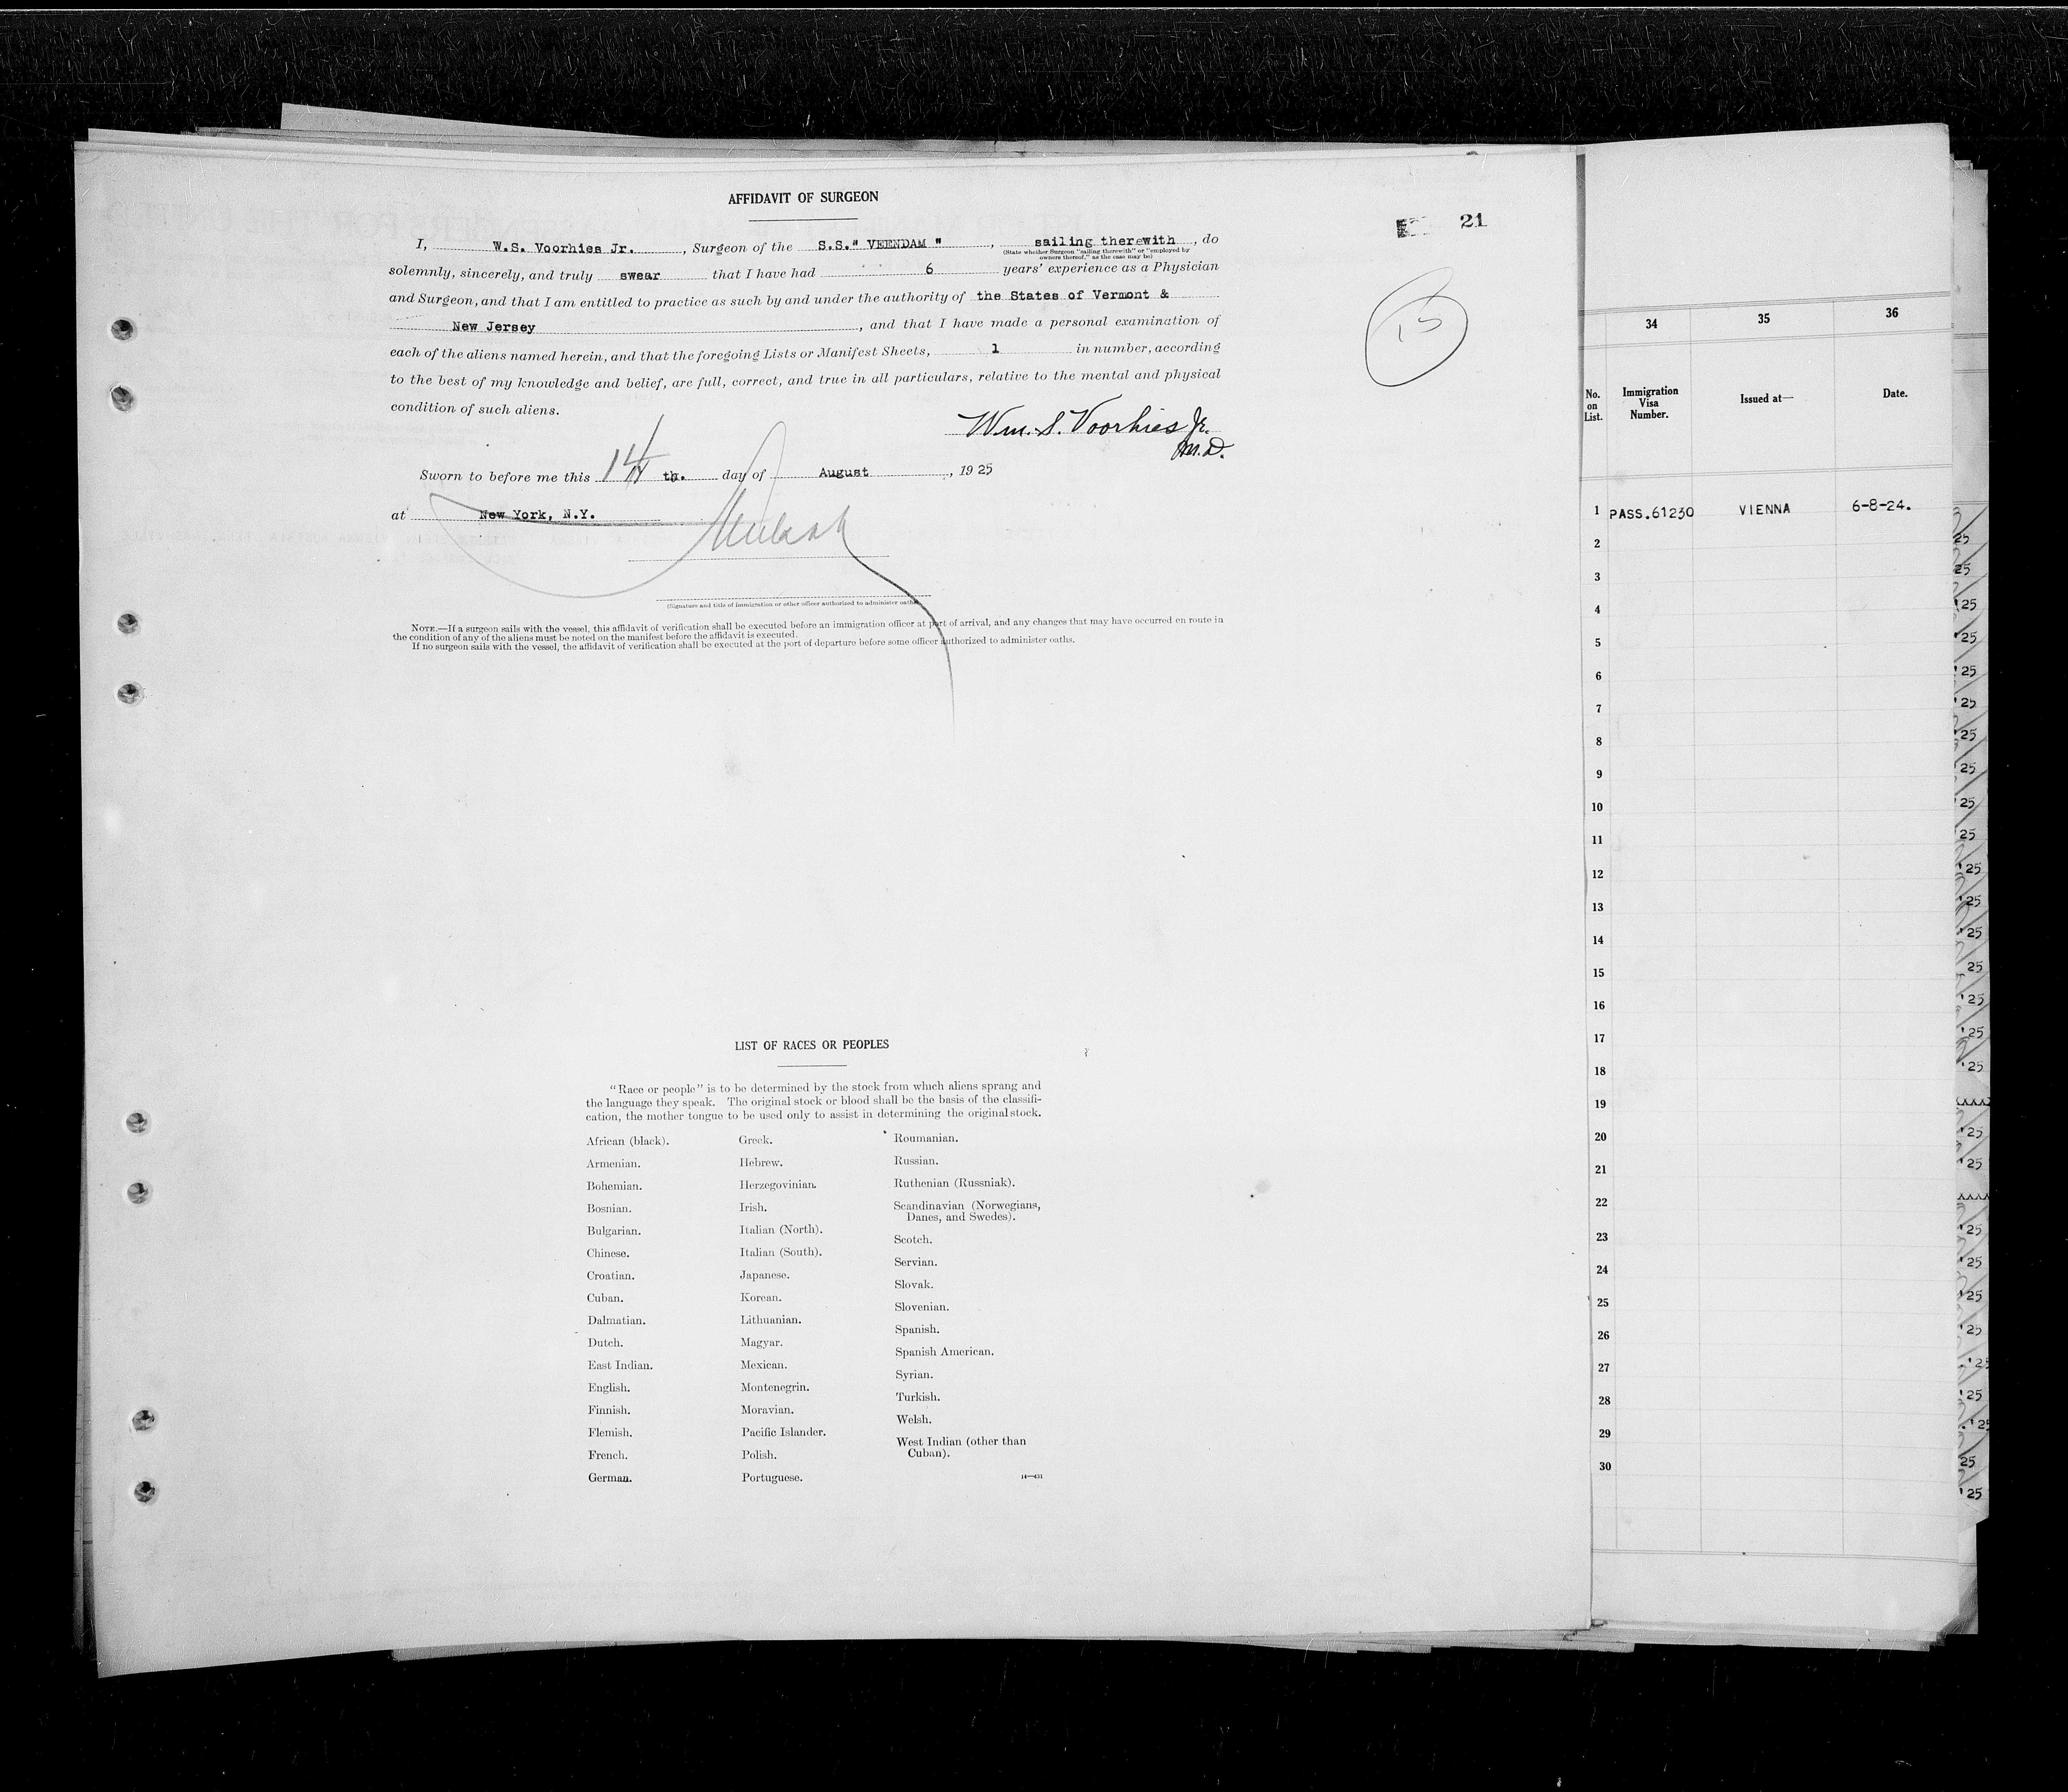 AFFIDAVIT OF SURGEON
21
I, W.S. Voorhies Jr. , Surgeon of the S.S." VEENDAM " , sailing therewith , do
(State whether Surgeon "sailing therewith" or "employed by
owners thereof," as the case may be)
solemnly, sincerely, and truly swear that I have had 6 years' experience as a Physician
and Surgeon, and that I am entitled to practice as such by and under the authority of the States of Vermont &
New Jersey , and that I have made a personal examination of
each of the aliens named herein, and that the foregoing Lists or Manifest Sheets, 1 in number, according
to the best of my knowledge and belief, are full, correct, and true in all particulars, relative to the mental and physical
condition of such aliens.
15
Wm. S. Voorhies Jr.
M.D.
Sworn to before me this 14 th. day of August , 1925
at New York, N.Y.
(Signature and title of immigration or other officer authorized to administer oaths)
NOTE.—If a surgeon sails with the vessel, this affidavit of verification shall be executed before an immigration officer at port of arrival, and any changes that may have occurred en route in
the condition of any of the aliens must be noted on the manifest before the affidavit is executed.
If no surgeon sails with the vessel, the affidavit of verification shall be executed at the port of departure before some officer authorized to administer oaths.
LIST OF RACES OR PEOPLES
"Race or people" is to be determined by the stock from which aliens sprang and
the language they speak. The original stock or blood shall be the basis of the classifi-
cation, the mother tongue to be used only to assist in determining the original stock.
African (black).
Armenian.
Bohemian.
Bosnian.
Bulgarian.
Chinese.
Croatian.
Cuban.
Dalmatian.
Dutch.
East Indian.
English.
Finnish.
Flemish.
French.
German.
Greek.
Hebrew.
Herzegovinian.
Irish.
Italian (North).
Italian (South).
Japanese.
Korean.
Lithuanian.
Magyar.
Mexican.
Montenegrin.
Moravian.
Pacific Islander.
Polish.
Portuguese.
Roumanian.
Russian.
Ruthenian (Russniak).
Scandinavian (Norwegians,
Danes, and Swedes).
Scotch.
Servian.
Slovak.
Slovenian.
Spanish.
Spanish American.
Syrian.
Turkish.
Welsh.
West Indian (other than
Cuban).
14—431
34 35 36
No.
on
List.
Immigration
Visa
Number.
Issued at—
Date.
1 PASS.61230 VIENNA 6-8-24.
2
3
4
5
6
7
8
9
10
11
12
13
14
15
16
17
18
19
20
21
22
23
24
25
26
27
28
29
30